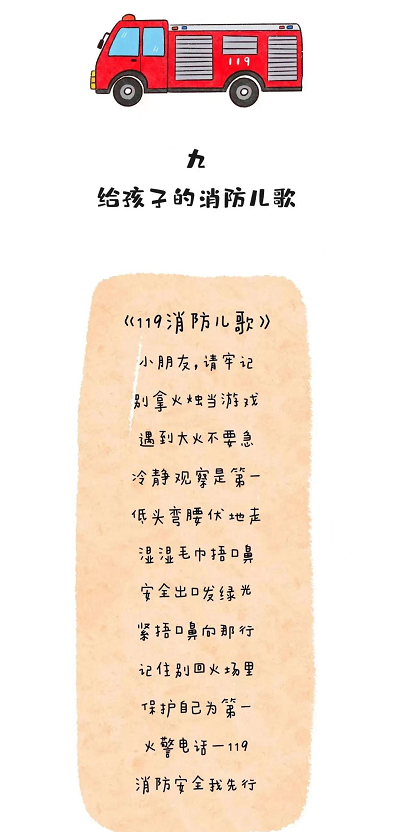 119
九
给孩子的消防儿歌
《119消防儿歌》
小朋友,请牢记
别拿火烛当游戏
遇到大火不要急
冷静观察是第一
低头弯腰伏地走
湿湿毛巾捂口鼻
安全出口发绿光
紧捂口鼻向那行
记住别回火场里
保护自己为第一
火警电话一119
消防安全我先行